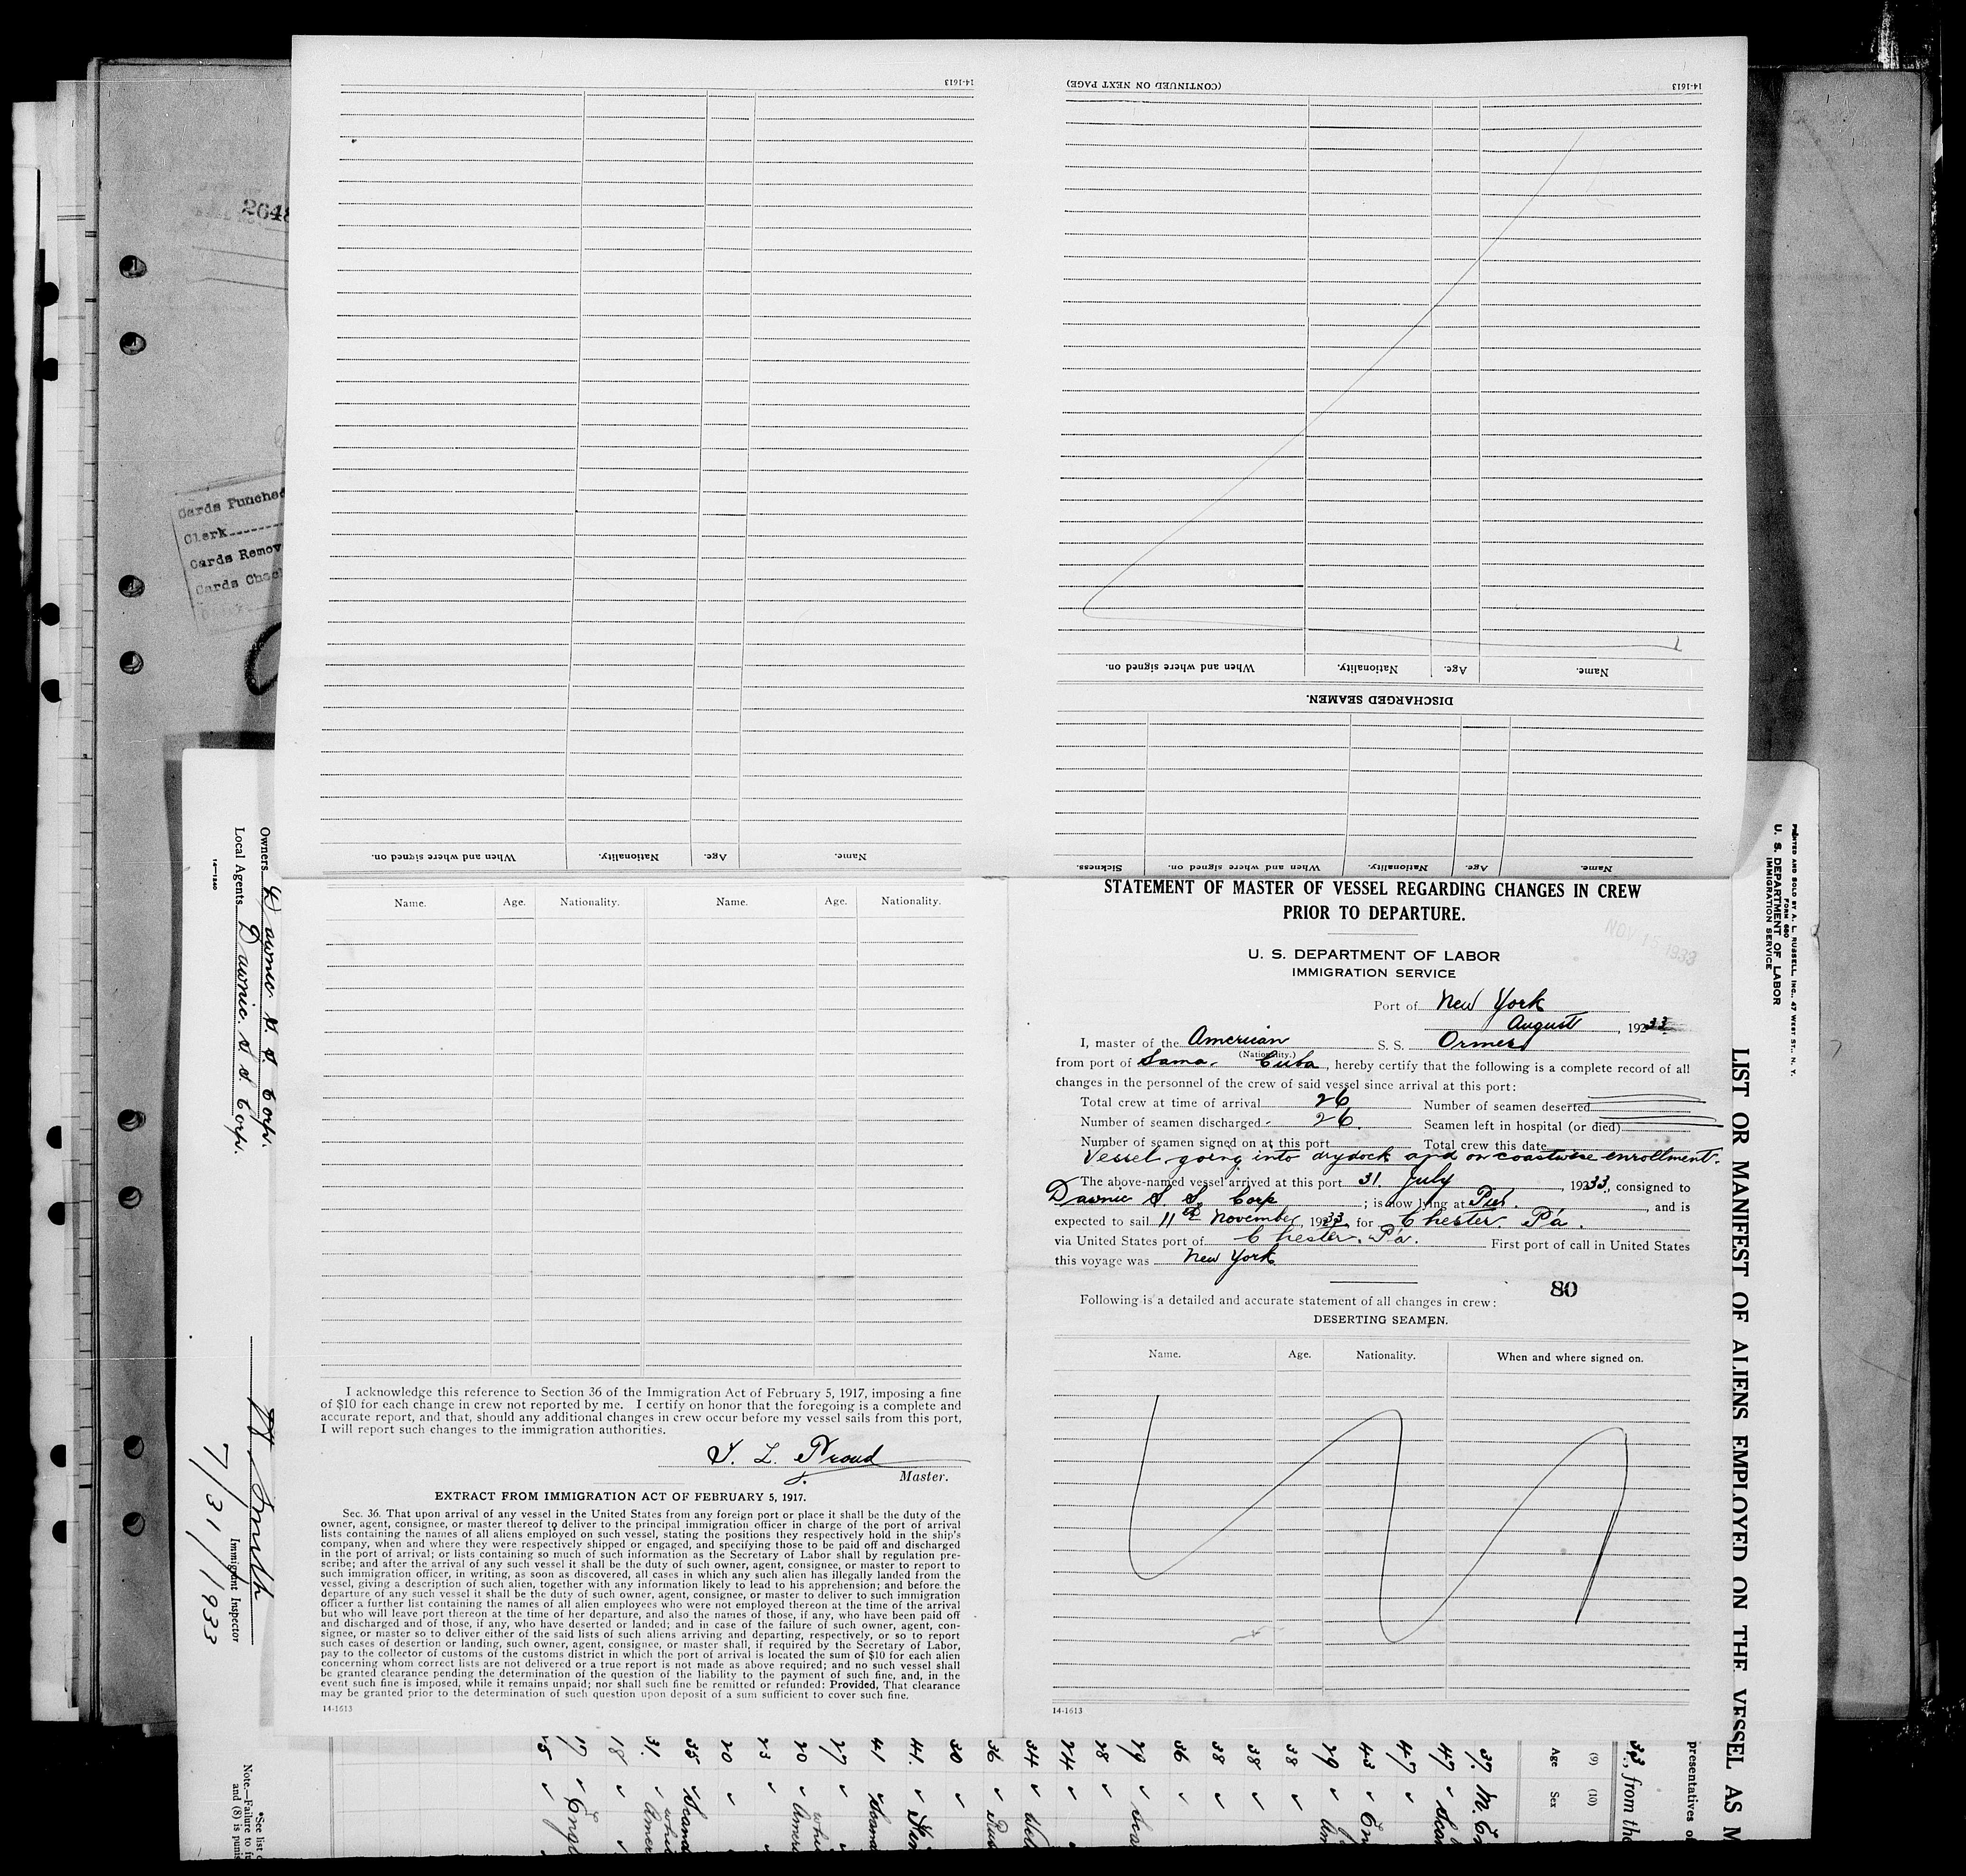 14-1613
(CONTINUED ON NEXT PAGE)
14-1613
Name. Age. Nationality. When and where signed on.
DISCHARGED SEAMEN.
Name. Age. Nationality. When and where signed on. Sickness.
Name. Age. Nationality. When and where signed on.
2648
Cards Punched
Clerk
Cards Remov
Cards Chec
Owners Dawnic S. S. Corp.
Local Agents Dawnic. S. S. Corp.
14-1240
Smith
Immigrant Inspector
7/31/1933
Name. Age. Nationality. Name. Age. Nationality.
I acknowledge this reference to Section 36 of the Immigration Act of February 5, 1917, imposing a fine
of $10 for each change in crew not reported by me. I certify on honor that the foregoing is a complete and
accurate report, and that, should any additional changes in crew occur before my vessel sails from this port,
I will report such changes to the immigration authorities.
L. Proud
Master.
EXTRACT FROM IMMIGRATION ACT OF FEBRUARY 5, 1917.
Sec. 36. That upon arrival of any vessel in the United States from any foreign port or place it shall be the duty of the
owner, agent, consignee, or master thereof to deliver to the principal immigration officer in charge of the port of arrival
lists containing the names of all aliens employed on such vessel, stating the positions they respectively hold in the ship's
company, when and where they were respectively shipped or engaged, and specifying those to be paid off and discharged
in the port of arrival; or lists containing so much of such information as the Secretary of Labor shall by regulation pre-
scribe; and after the arrival of any such vessel it shall be the duty of such owner, agent, consignee, or master to report to
such immigration officer, in writing, as soon as discovered, all cases in which any such alien has illegally landed from the
vessel, giving a description of such alien, together with any information likely to lead to his apprehension; and before the
departure of any such vessel it shall be the duty of such owner, agent, consignee, or master to deliver to such immigration
officer a further list containing the names of all alien employees who were not employed thereon at the time of the arrival
but who will leave port thereon at the time of her departure, and also the names of those, if any, who have been paid off
and discharged and of those, if any, who have deserted or landed; and in case of the failure of such owner, agent, con-
signee, or master so to deliver either of the said lists of such aliens arriving and departing, respectively, or so to report
such cases of desertion or landing, such owner, agent, consignee, or master shall, if required by the Secretary of Labor,
pay to the collector of customs of the customs district in which the port of arrival is located the sum of $10 for each alien
concerning whom correct lists are not delivered or a true report is not made as above required; and no such vessel shall
be granted clearance pending the determination of the question of the liability to the payment of such fine, and, in the
event such fine is imposed, while it remains unpaid; nor shall such fine be remitted or refunded: Provided, That clearance
may be granted prior to the determination of such question upon deposit of a sum sufficient to cover such fine.
14-1613
STATEMENT OF MASTER OF VESSEL REGARDING CHANGES IN CREW
PRIOR TO DEPARTURE.
NOV 15 1933
U. S. DEPARTMENT OF LABOR
IMMIGRATION SERVICE
Port of New York
August, 1933
I, master of the American S. S. Ormes
(Nationality.)
from port of Sama. Cuba, hereby certify that the following is a complete record of all
changes in the personnel of the crew of said vessel since arrival at this port:
Total crew at time of arrival 26 Number of seamen deserted
Number of seamen discharged 26. Seamen left in hospital (or died)
Number of seamen signed on at this port Total crew this date
Vessel going into drydock and on coastwise enrollment.
The above-named vessel arrived at this port 31 July, 1933, consigned to
Dawnic S. S. Corp; is now lying at Pier., and is
expected to sail 11th November, 1933, for Chester Pa.
via United States port of Chester, Pa. First port of call in United States
this voyage was New York
80
Following is a detailed and accurate statement of all changes in crew:
DESERTING SEAMEN.
Name. Age. Nationality. When and where signed on.
14-1613
PRINTED AND SOLD BY A. L. RUSSELL, INC., 47 WEST ST., N. Y.
FORM 680
U. S. DEPARTMENT OF LABOR
IMMIGRATION SERVICE
LIST OR MANIFEST OF ALIENS EMPLOYED ON THE VESSEL AS M
presentatives of
33, from the
(9) (10)
Age Sex
37 M. En
47 Scan
47
43 En
29 Am
38
38
38
36
29 Sca
28
24
34 Wel
36 Rus
30
41. Fin
41 Scand
27
20 white Ameri
23
20
35 Scand
31. white Amer
18
19 Engl
25
*See list o
Note.—Failure to f
and (8) is punis